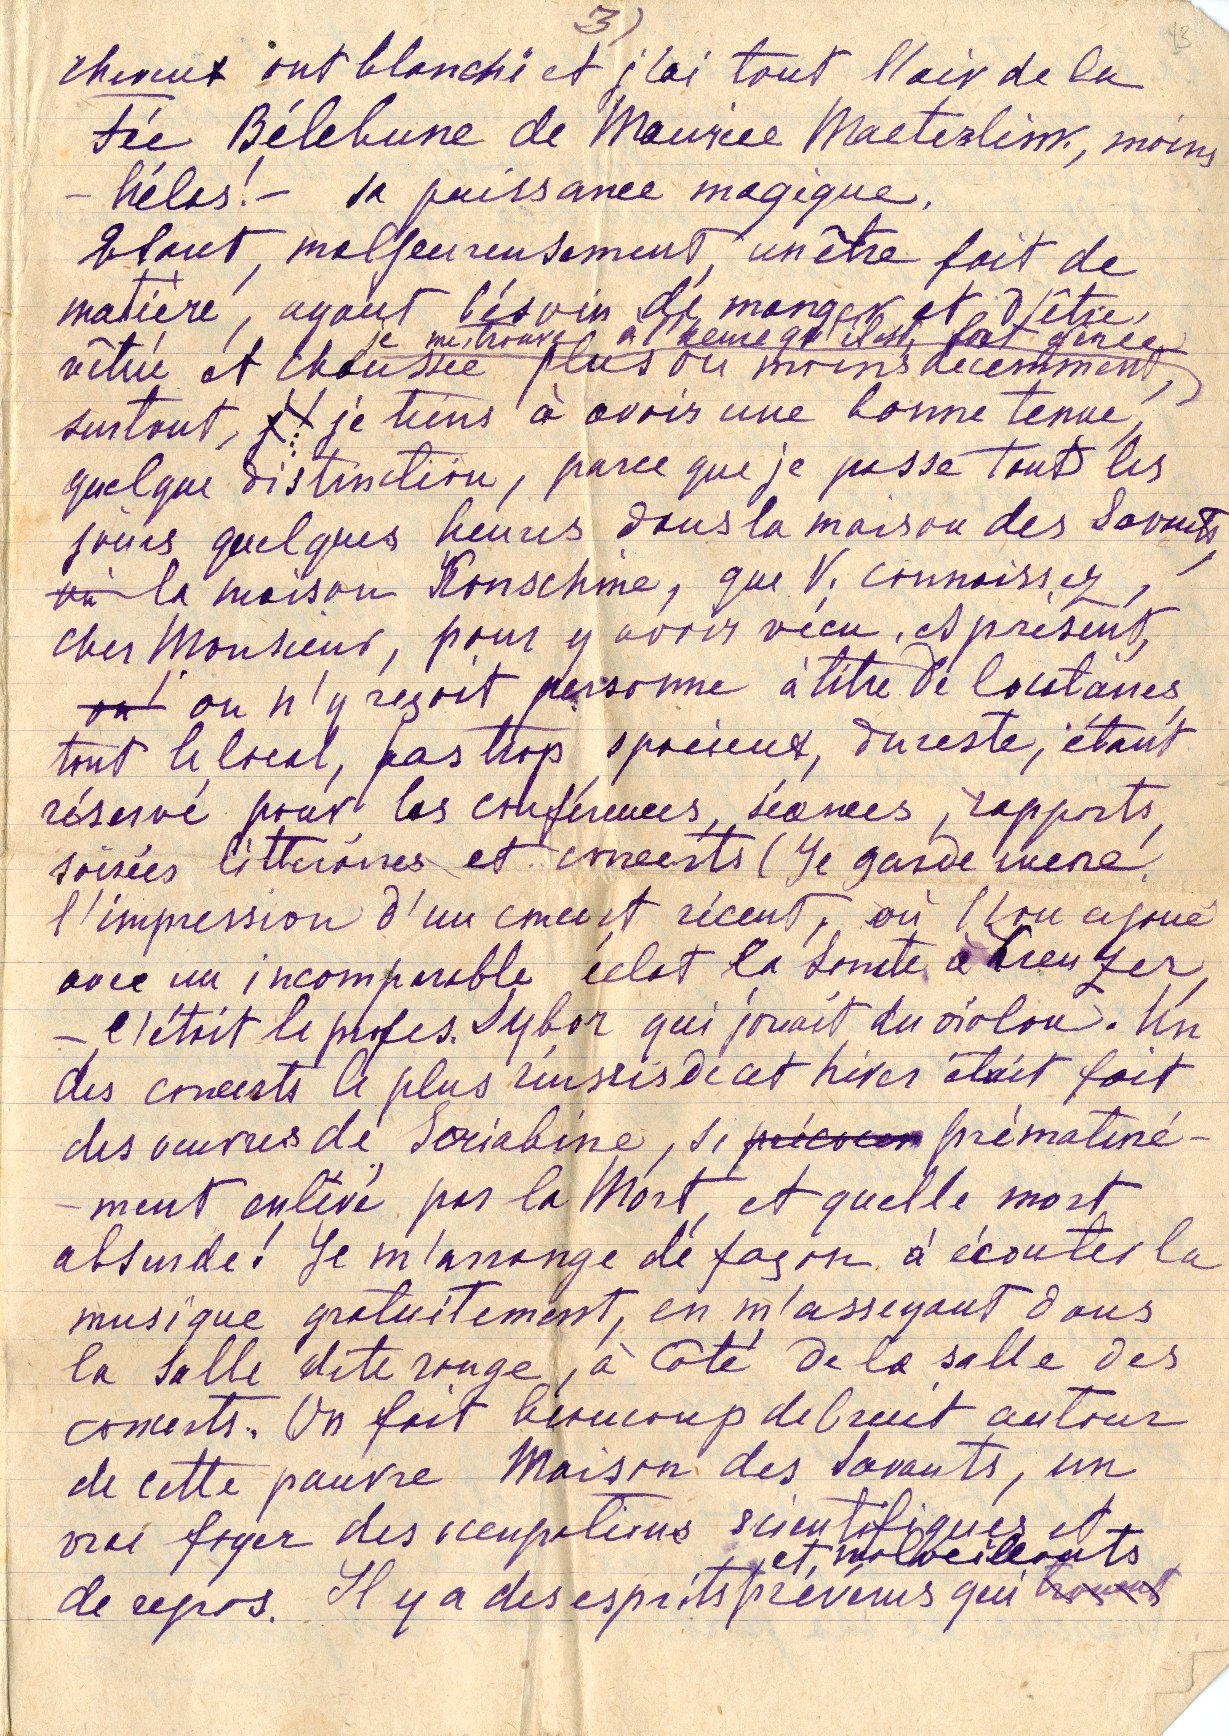 3)
13
cheveux ont blanchi et j'ai tout l'air de la
Fée Bélebune de Maurice Maeterlink, moins
– hélas! – sa puissance magique.
Etant, malheureusement, un être fait de
matière, ayant bésoin de manger et d'être
je me trouve à l'heure qu'il est, fort gênée
vêtue et chaussée plus ou moins decemment,
surtout, je tiens à avoir une bonne tenue,
quelque distinction, parce que je passe tout les
jours quelques heures dans la maison des Savants,
où la maison Konschine, que V. connaissez,
cher Monsieur, pour y avoir vécu. A présent,
on n'y reçoit personne à titre de locataires,
tout le local, pas trop spacieux, du reste, étant
réservé pour les conférences, séances, rapports,
soirées littéraires et concerts (Je garde encore
l'impression d'un concert récent, où l'on a joué
avec un incomparable éclat la Sonate à Kreuzer,
– c'était le profes. Sybor qui jouait du violon. Un
des concerts le plus réussis de cet hiver était fait
des œuvres de Scriabine, si précocem prématuré-
-ment enlévé par la Mort, et quelle mort
absurde! Je m'arrange de façon à écouter la
musique gratuitement, en m'asseyant dans
la salle dite rouge, à côté de la salle des
concerts. On fait beaucoup de bruit autour
de cette pauvre Maison des Savants, un
vrai foyer des occupations scientifiques et
et malveillants
de repos. Il y a des esprits prévénus qui trouvent